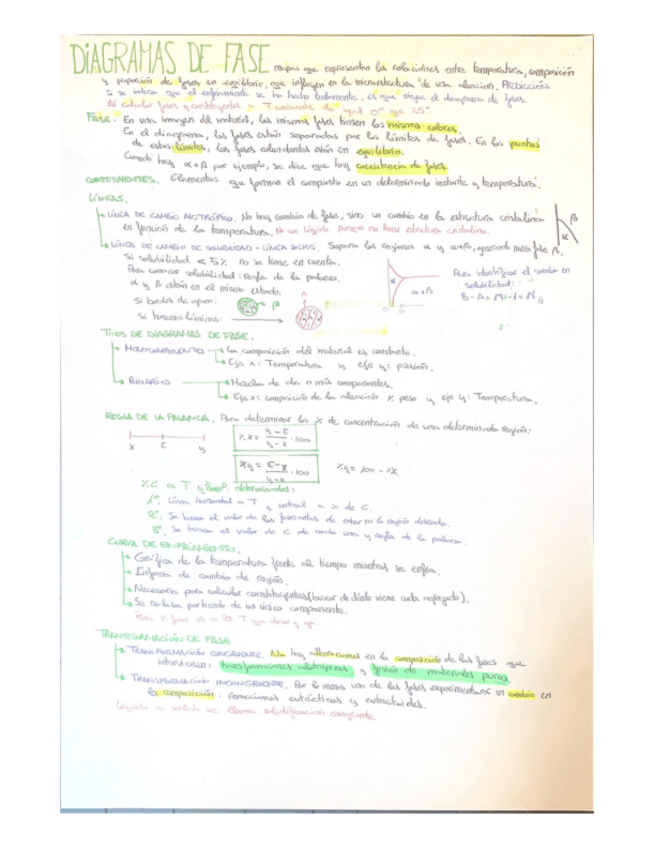 DIAGRAMAS DE FASE mapas que representan las relaciones entre temperatura, composición
y proporción de fases en equilibrio, que influyen en la microestructura de una aleación. PREDICCIÓN
Si se indica que el enfriamiento se ha hecho lentamente, es que sigue el diagrama de fases.
Al calcular fases y constituyentes a T ambiente da igual 0° que 25°
FASE. En una imagen del material, las mismas fases tienen los mismos colores.
En el diagrama, las fases están separadas por los límites de fases. En los puntos
de estos límites, las fases están en equilibrio.
Cuando hay α+β por ejemplo, se dice que hay coexistencia de fases.
CONSTITUYENTES. Elementos que forman el compuesto en un determinado instante y temperatura.
LÍNEAS.
LÍNEA DE CAMBIO ALOTRÓPICO. No hay cambio de fase, sino un cambio en la estructura cristalina
en función de la temperatura. No un líquido porque no tiene estructura cristalina.
β
α
LÍNEA DE CAMBIO DE SOLUBILIDAD - LÍNEA SOLVUS. Separa las regiones α y α+β, apareciendo nueva fase β.
Si solubilidad < 5% no se tiene en cuenta.
Para conocer solubilidad: regla de la palanca.
α y β están en el mismo estado.
α
α+β
Para identificar el cambio en
solubilidad:
Si bordes de grano:
β
Si láminas:
TIPOS DE DIAGRAMAS DE FASE.
MONOCOMPONENTES → La composición del material es constante.
Eje x: Temperatura y eje y: presión.
BINARIOS → Mezcla de dos o más componentes.
Eje x: composición de la aleación % peso y eje y: Temperatura.
REGLA DE LA PALANCA. Para determinar los % de concentración de una determinada región:
x C y
% x = y - C / y - x · 100
% y = C - x / y - x · 100
% y = 100 - % x
% C a T y determinadas:
1°. Línea horizontal a T y vertical a % de C.
2°. Se busca el valor de las fases antes de entrar en la región deseada.
3°. Se buscan el valor de C de cada una y regla de la palanca.
CURVA DE ENFRIAMIENTO.
Gráfica de la temperatura frente al tiempo mientras se enfría.
Informa de cambio de región.
Necesaria para calcular constituyentes (buscar de dónde viene cada).
Se realiza partiendo de un único componente.
TRANSFORMACIÓN DE FASE
TRANSFORMACIÓN CONGRUENTE. No hay alteraciones en la composición de las fases que
intervienen: transformaciones alotrópicas y fusión de materiales puros.
TRANSFORMACIÓN INCONGRUENTE. Por lo menos una de las fases experimentará un cambio en
la composición: reacciones eutécticas y eutectoides.
Líquido a sólido se llama solidificación congruente.